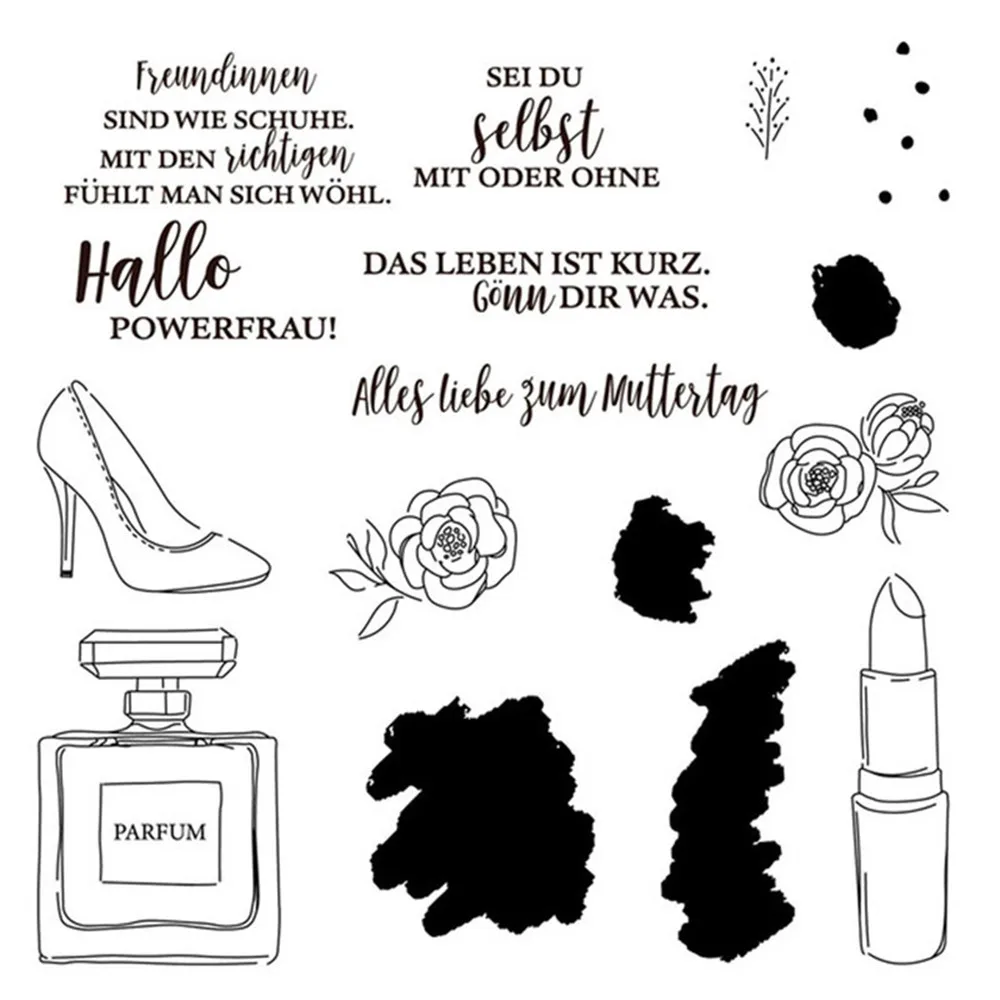 Freundinnen
SIND WIE SCHUHE.
MIT DEN richtigen
FÜHLT MAN SICH WÖHL.
SEI DU
selbst
MIT ODER OHNE
Hallo
POWERFRAU!
DAS LEBEN IST KURZ.
Gönn DIR WAS.
Alles liebe zum Muttertag
PARFUM